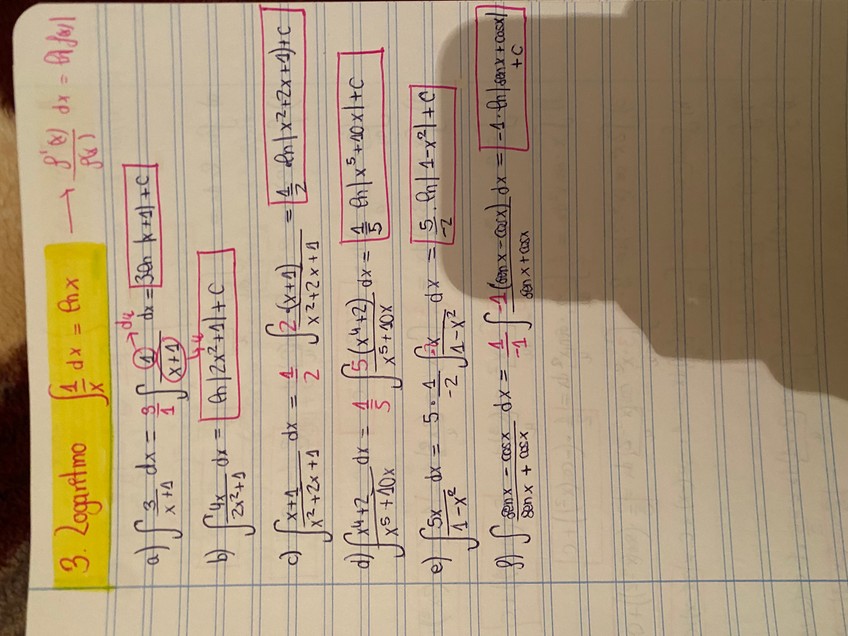 3. Logaritmo ∫ 1/x dx = ln x → f'(x)/f(x) dx = ln f(x)
a) ∫ 3/(x+1) dx = 3/1 ∫ 1/(x+1) dx = 3 ln |x+1| + C
→ du
→ u
b) ∫ 4x/(2x²+1) dx = ln |2x²+1| + C
c) ∫ (x+1)/(x²+2x+1) dx = 1/2 ∫ 2·(x+1)/(x²+2x+1) = 1/2 ln |x²+2x+1| + C
d) ∫ (x⁴+2)/(x⁵+10x) dx = 1/5 ∫ 5(x⁴+2)/(x⁵+10x) dx = 1/5 ln |x⁵+10x| + C
e) ∫ 5x/(1-x²) dx = 5 · 1/-2 ∫ -x/(1-x²) dx = 5/-2 · ln |1-x²| + C
f) ∫ (sen x - cos x)/(sen x + cos x) dx = 1/-1 ∫ -1(sen x - cos x)/(sen x + cos x) dx = -1 · ln |sen x + cos x| + C